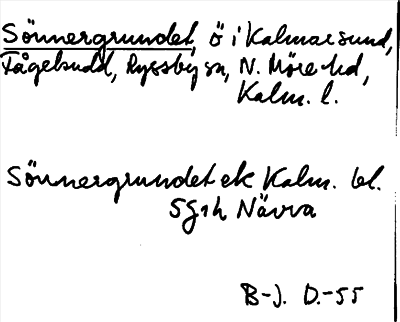 Sönnergrundet, ö i Kalmarsund,
Fågeludd, Ryssby sn, N. Möre hd,
Kalm. l.
Sönnergrundet ek Kalm. bl.
5G1h Nävra
B-J. D.-55